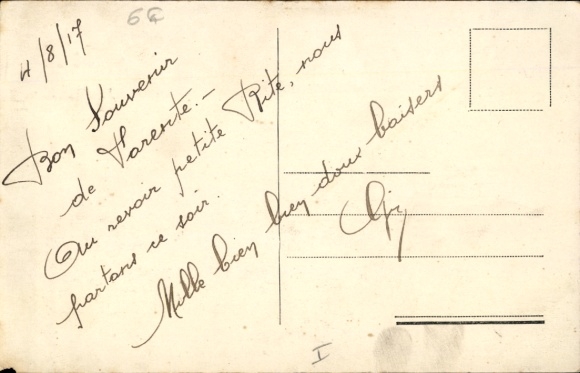 4/8/17
6G
Bon Souvenir
de Tarente.-
Au revoir petite Rite, nous
partons ce soir.
Mille bien bien doux baisers
I